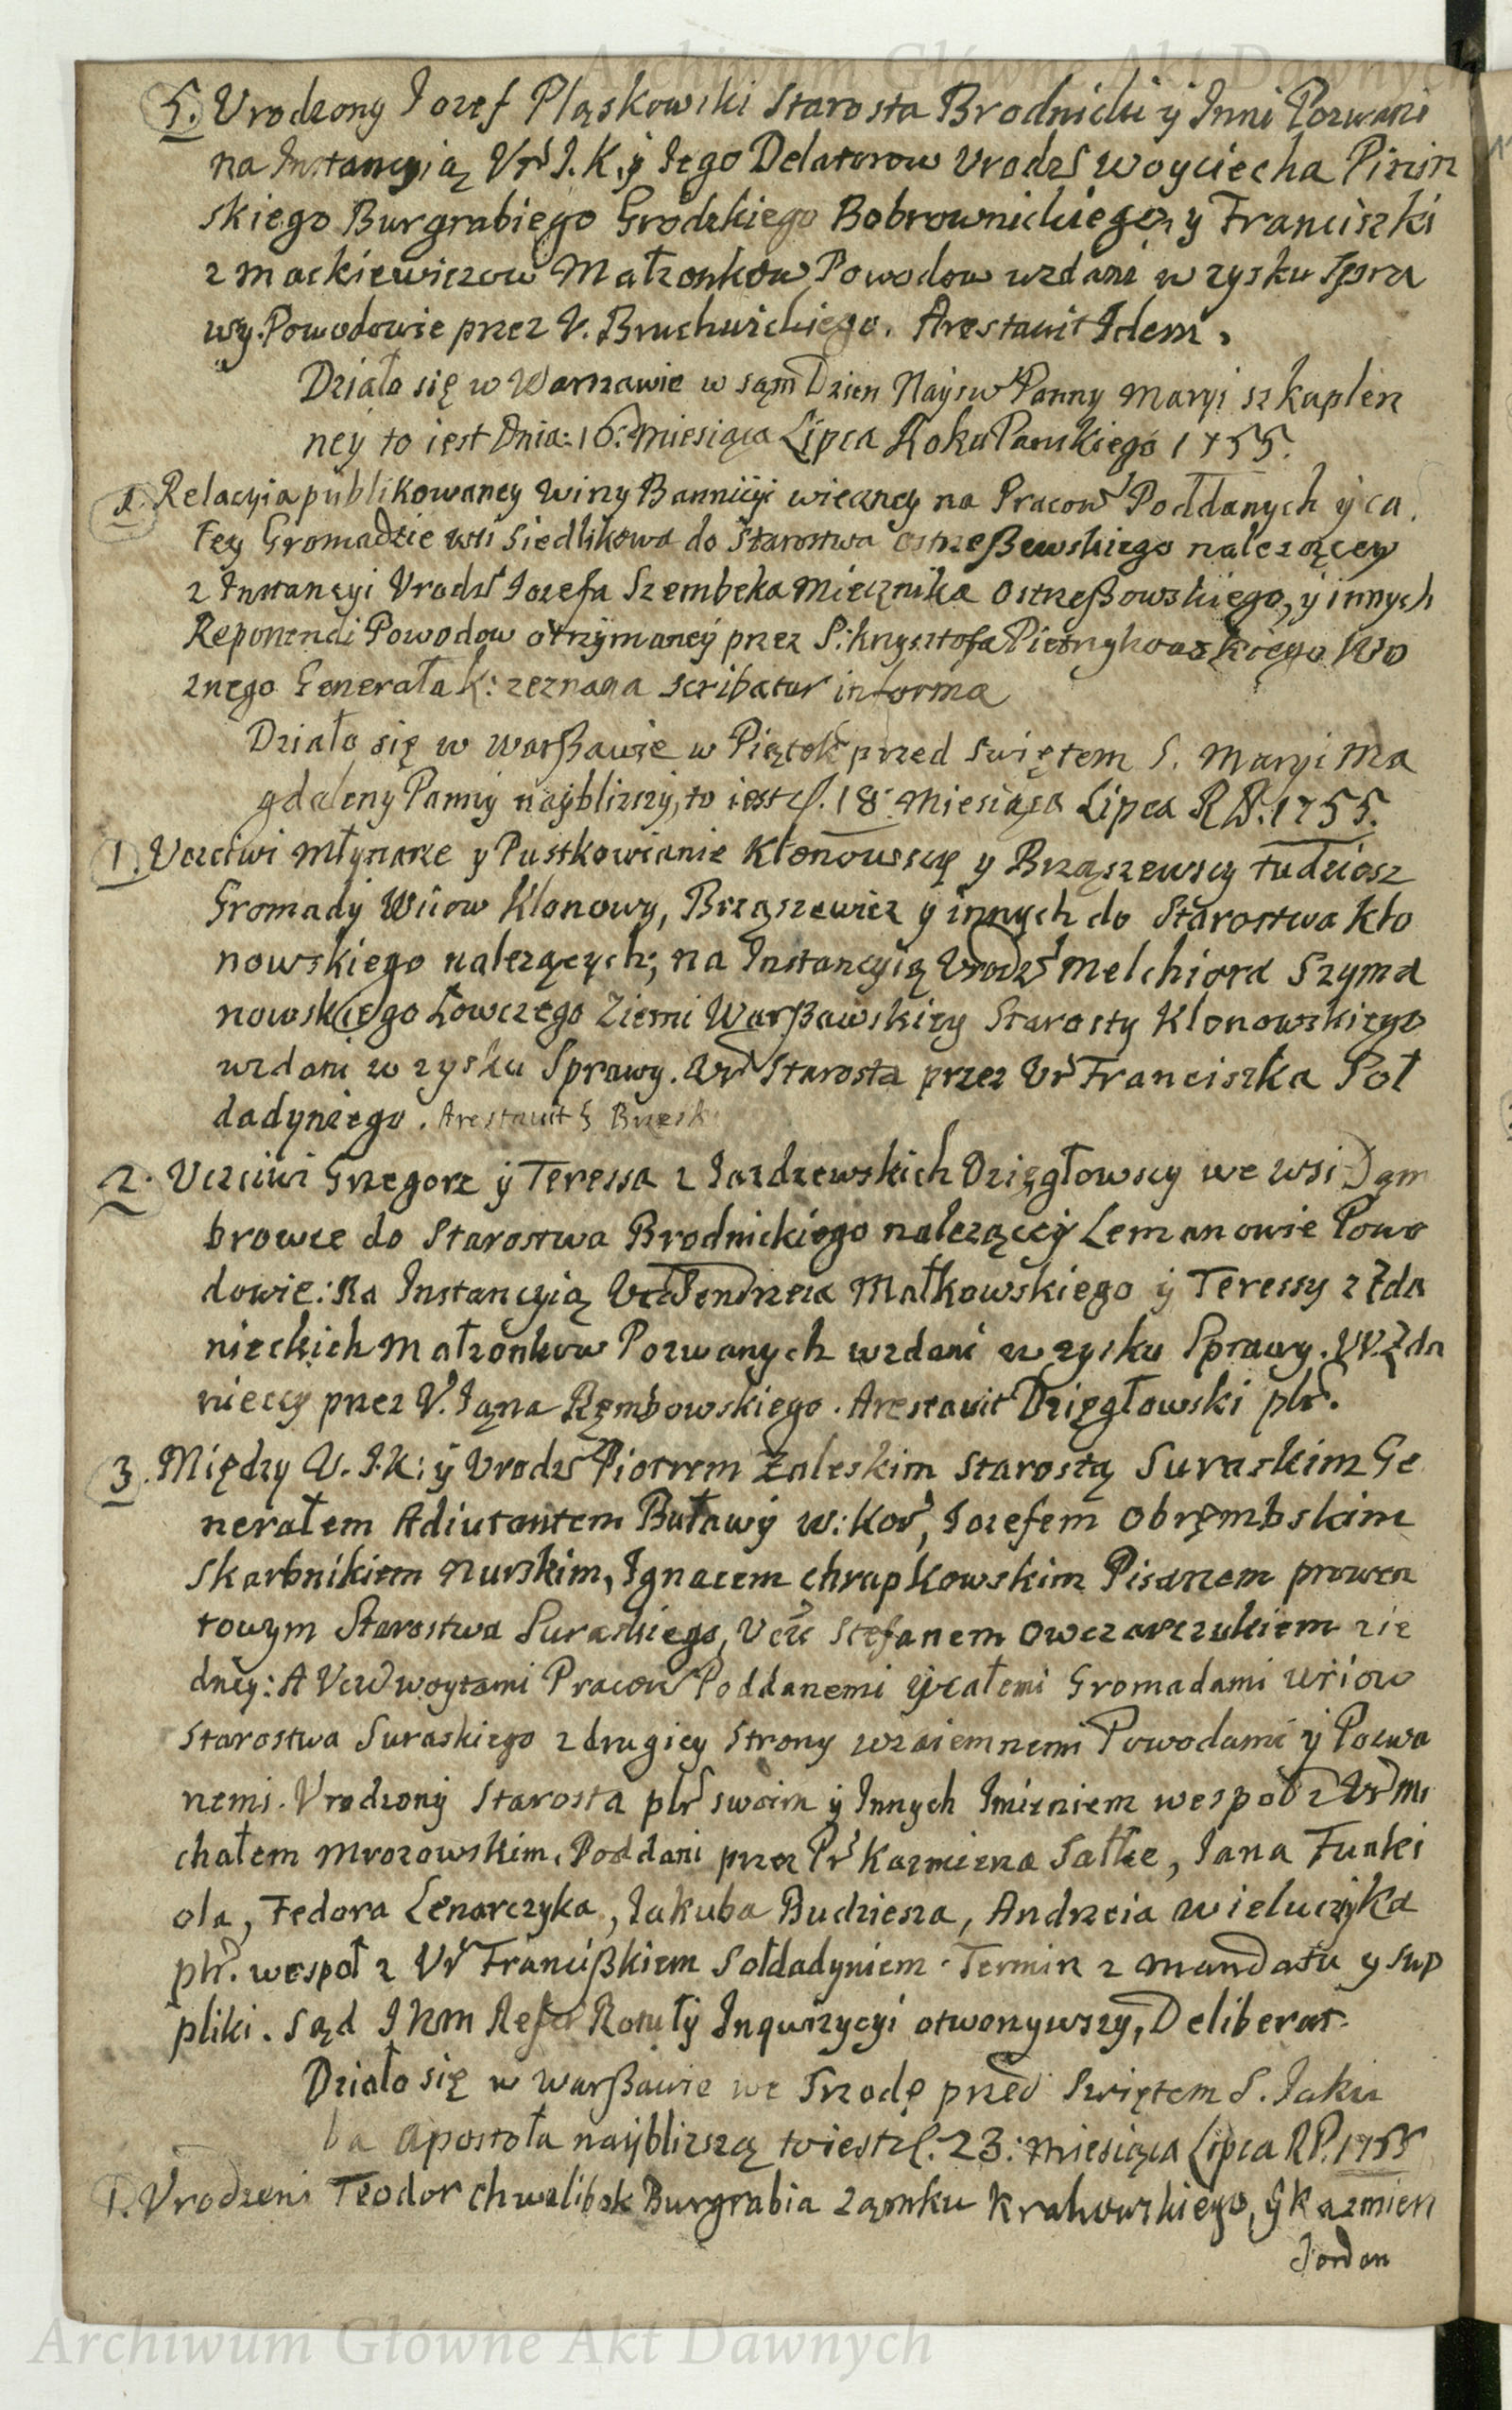 Archiwum Główne Akt Dawnych
5. Urodzony Jozef Pląskowski Starosta Brodnicki y Inni Pozwani
na Instancyią Ur J.K. y Jego Delatorow Urodz Woyciecha Pinin
skiego Burgrabiego Grodzkiego Bobrownickiego, y Franciszki
z Mackiewiczow Małzonkow Powodow wzdani w zysku Spra
wy. Powodowie przez U. Bruchwickiego. Arestavit Idem.
Działo się w Warszawie w sąm Dzien Naysw Panny Maryi szkaplerz
ney to iest Dnia: 16: Miesiąca Lipca Roku Panskiego 1755.
1. Relacyia publikowaney Winy Bannicyi wieczney na Pracow Poddanych y ca
łey Gromadzie wsi Siedlikowa do Starostwa Ostrzeßewskiego nalezącey
z Instancyi Urodz Jozefa Szembeka Miecznika Ostrzeßowskiego, y innych
Reponendi Powodow otrzymaney przez S: Krysztofa Pietrzykowskiego Wo
znego Generała K: zeznana scribatur in forma
Działo się w Warßawie w Piątek przed Swiętem S. Maryi Ma
gdaleny Panny naybliższy, to iest d. 18: Miesiąca Lipca RP. 1755.
1. Uczciwi Młynarze y Pustkowianie Kłonowscy y Brząszewscy tudziesz
Gromady Wsiow Klonowy, Brząszewicz y innych do Starostwa Kło
nowskiego nalezących, na Instancyią Urodz Melchiora Szyma
nowskiego Łowczego Ziemi Warßawskiey Starosty Klonowskiego
wzdani w zysku Sprawy. Ur Starosta przez Ur Franciszka Soł
dadyniego. Arestavit S Brzesk
2. Uczciwi Grzegorz y Teressa z Jazdzewskich Dzięgłowscy we wsi Dąm
browce do Starostwa Brodnickiego nalezącey Lemanowie Powo
dowie: Na Instancyią Urodz Jendrzeia Małkowskiego y Teressy z Zda
nieckich Małzonkow Pozwanych wzdani w zysku Sprawy. UU. Zda
nieccy przez U. Jąna Ręmbowskiego. Arestavit Dzięgłowski plr.
3. Między U. J.K: y Urodz Piotrem Zaleskim Starostą Suraskim Ge
nerałem Adiutantem Buławy W: Kor, Jozefem Obrembskim
Skarbnikiem Nurskim, Ignacem Chrapkowskim Pisarzem prowen
towym Starostwa Suraskiego, Ucz Stefanem Owczarczukiem z ie
dney: A Ucz Woytami Pracow Poddanemi y całemi Gromadami Wsiow
Starostwa Suraskiego z drugiey Strony wzaiemnemi Powodami y Pozwa
nemi. Urodzony Starosta plr swoim y Innych Imieniem wespoł z Ur Mi
chałem Mrozowskim. Poddani przez Pr Kazmierza Satke, Jana Funki
ola, Fedora Lenarczyka, Jakuba Budziesza, Andrzeia Wieluczyka
plr. wespoł z Ur Franciszkiem Sołdadyniem. Termin z Mandatu y sup
pliki. Sąd JKM Refer Rotuły Inquizycyi otworzywszy, Deliberat.
Działo się w Warßawie we Srzodę przed Swiętem S. Jaku
ba Apostoła naybliższą to iest d. 23: Miesiąca Lipca RP. 1755
1. Urodzeni Teodor Chwalibok Burgrabia Ząmku Krakowskiego, y Kazmierz
Jordan
Archiwum Główne Akt Dawnych